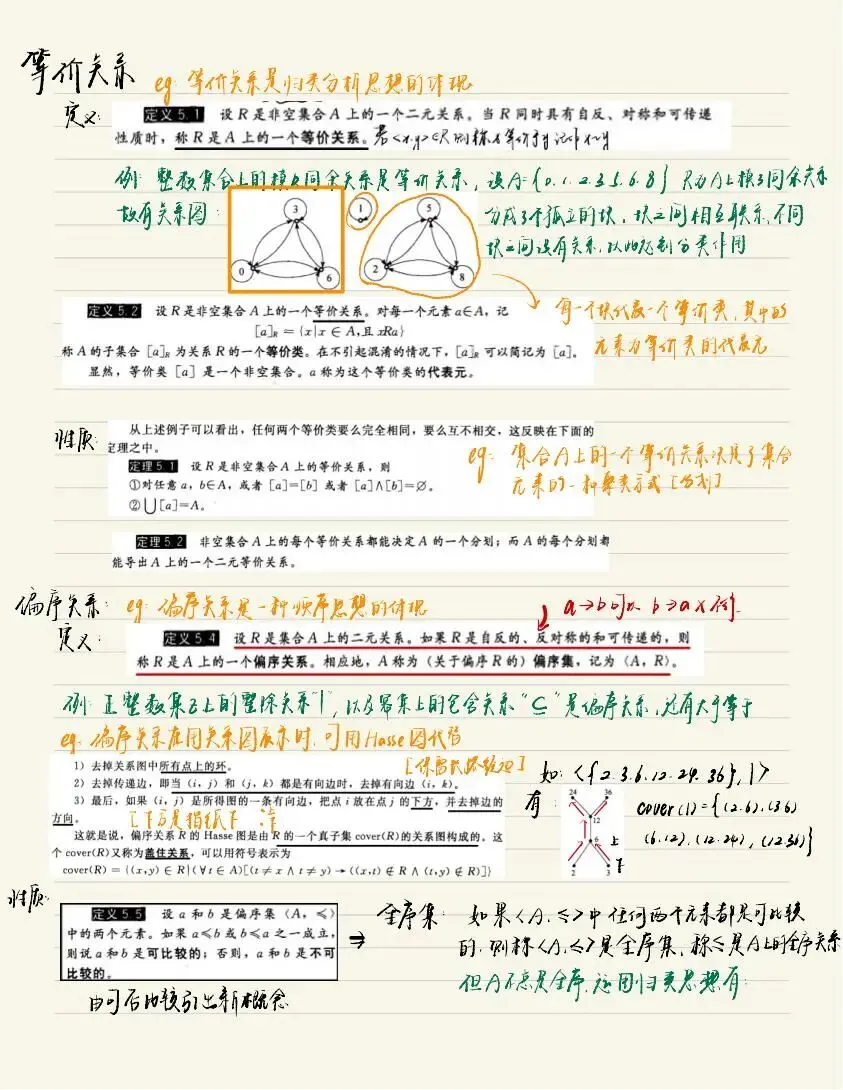 等价关系 eg: 等价关系是归类分析思想的体现
定义: 定义 5.1 设 R 是非空集合 A 上的一个二元关系。当 R 同时具有自反、对称和可传递
性质时，称 R 是 A 上的一个等价关系。若<x,y>∈R 则称x等价于y 记作x~y
例: 整数集合上的模k同余关系是等价关系，设A={0.1.2.3.5.6.8} R为A上模3同余关系
故有关系图: 3 1 5 分成3个孤立的块，块之间相互联系,不同
0 6 2 8 块之间没有关系,以此起到分类作用
定义 5.2 设 R 是非空集合 A 上的一个等价关系。对每一个元素 a∈A，记 每一个块代表一个等价类,其中的
[a]R = {x|x∈A,且 xRa} 元素为等价类的代表元
称 A 的子集合 [a]R 为关系 R 的一个等价类。在不引起混淆的情况下，[a]R 可以简记为 [a]。
显然，等价类 [a] 是一个非空集合。a 称为这个等价类的代表元。
性质: 从上述例子可以看出，任何两个等价类要么完全相同，要么互不相交，这反映在下面的
定理之中。
eg: 集合A上的一个等价关系决定了集合
元素的一种聚类方式[分划]
定理 5.1 设 R 是非空集合 A 上的等价关系，则
①对任意 a，b∈A，或者 [a]=[b] 或者 [a]∧[b]=∅。
②⋃[a]=A。
定理 5.2 非空集合 A 上的每个等价关系都能决定 A 的一个分划；而 A 的每个分划都
能导出 A 上的一个二元等价关系。
偏序关系: eg: 偏序关系是一种顺序思想的体现 a→b可以 b→a×
定义: 定义 5.4 设 R 是集合 A 上的二元关系。如果 R 是自反的、反对称的和可传递的，则
称 R 是 A 上的一个偏序关系。相应地，A 称为（关于偏序 R 的）偏序集，记为〈A，R〉。
例: 正整数集Z上的整除关系"|", 以及幂集上的包含关系"⊆"是偏序关系,还有大于等于
eg: 偏序关系在用关系图展示时,可用Hasse图代替
1）去掉关系图中所有点上的环。
2）去掉传递边，即当（i，j）和（j，k）都是有向边时，去掉有向边（i，k）。
3）最后，如果（i，j）是所得图的一条有向边，把点 i 放在点 j 的下方，并去掉边的
方向。
这就是说，偏序关系 R 的 Hasse 图是由 R 的一个真子集 cover(R)的关系图构成的。这
个 cover(R)又称为盖住关系，可以用符号表示为
cover(R) = {(x,y)∈R|(∀t∈A)[(t≠x∧t≠y)→((x,t)∉R∧(t,y)∉R)]}
如: <{2.3.6.12.24.36},|>
有: 24 36 12 6 2 3 上 下
cover(|)={(2.6),(3.6)
(6.12),(12.24),(12.36)}
性质: 定义 5.5 设 a 和 b 是偏序集〈A，≤〉
中的两个元素。如果 a≤b 或 b≤a 之一成立，
则说 a 和 b 是可比较的；否则，a 和 b 是不可
比较的。
由可否比较引出新概念
⇒ 全序集: 如果<A,≤>中任何两个元素都是可比较
的,则称<A,≤>是全序集,称≤是A上的全序关系
但A不总是全序,运用归类思想有: